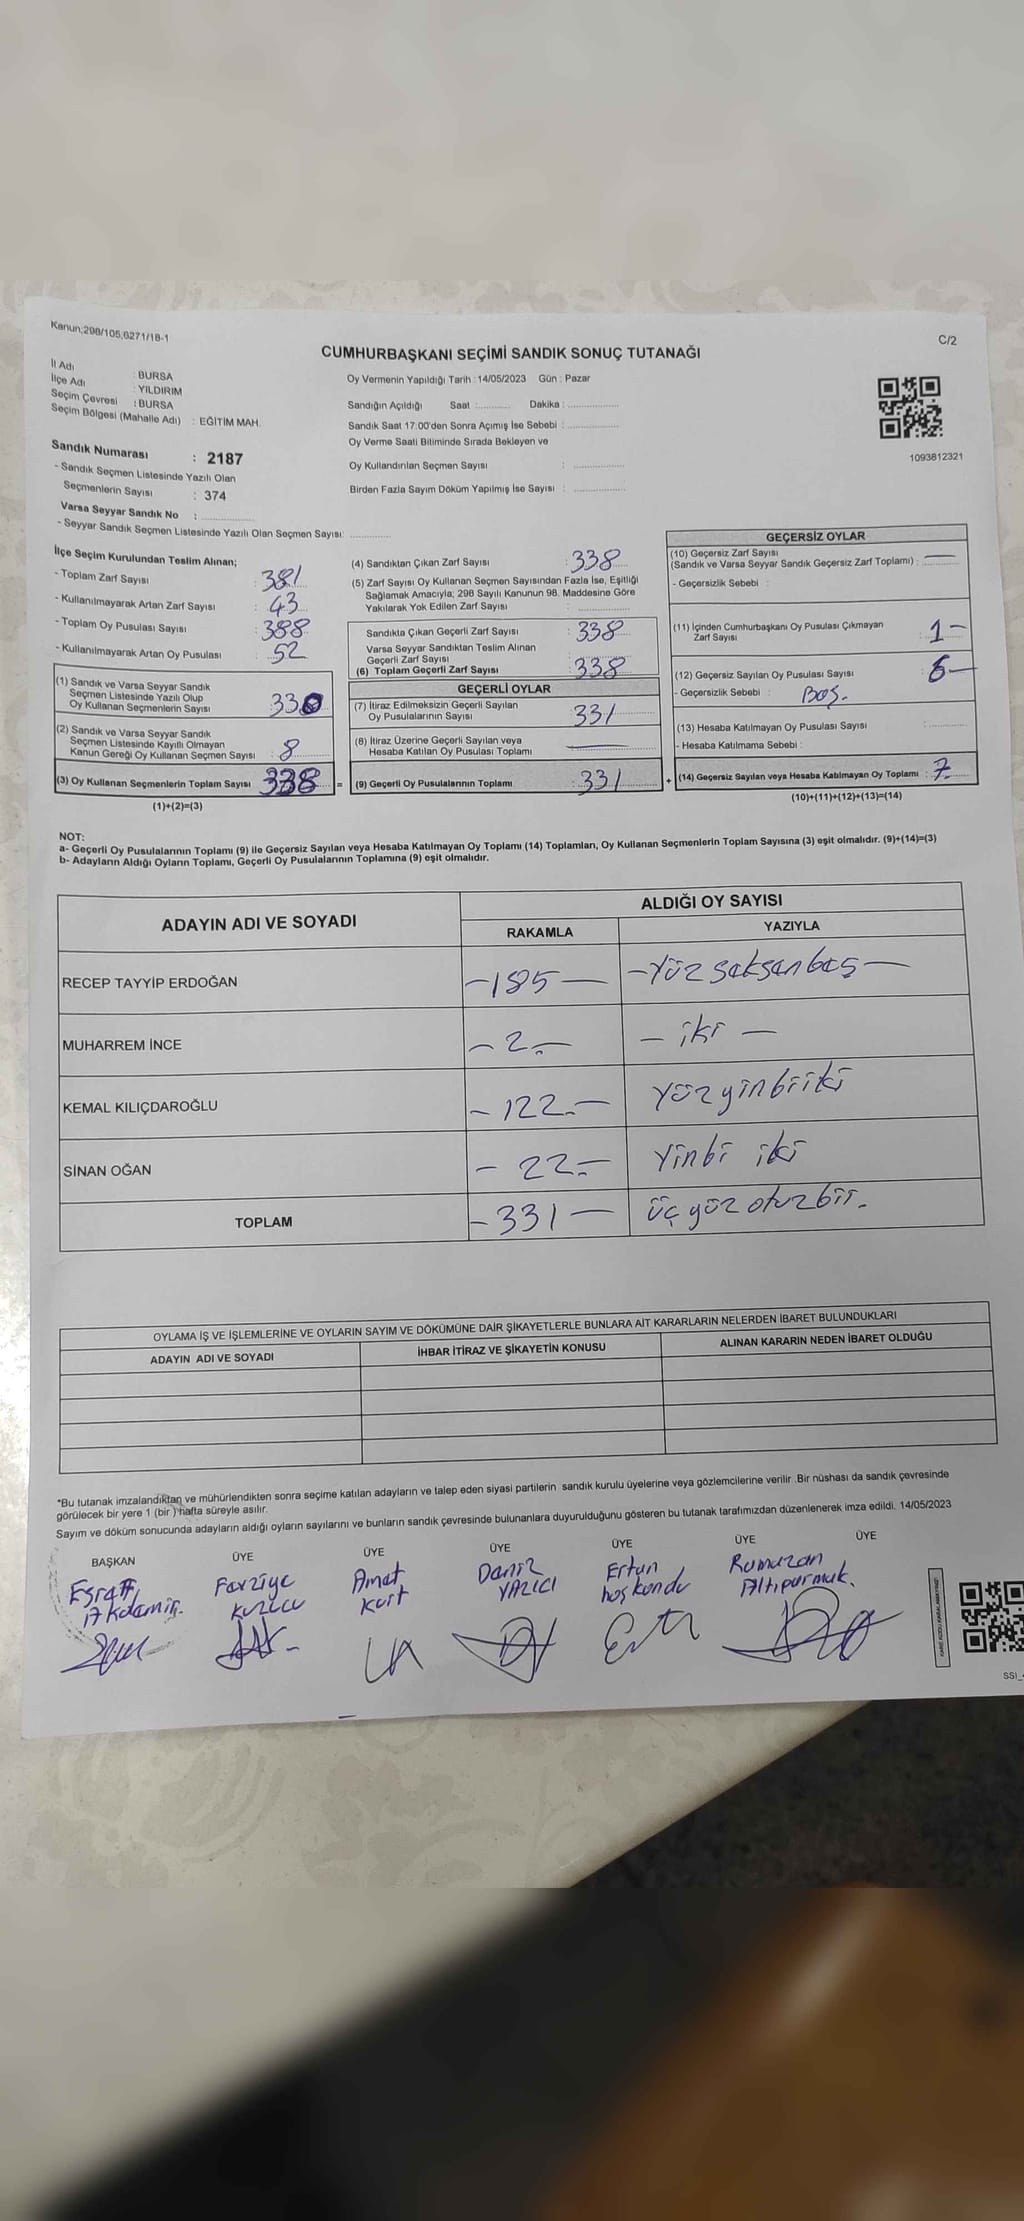 Kanun;298/105,6271/18-1
C/2
CUMHURBAŞKANI SEÇİMİ SANDIK SONUÇ TUTANAĞI
İl Adı : BURSA
İlçe Adı : YILDIRIM
Seçim Çevresi : BURSA
Seçim Bölgesi (Mahalle Adı) : EĞİTİM MAH.
Oy Vermenin Yapıldığı Tarih : 14/05/2023 Gün : Pazar
Sandığın Açıldığı Saat :........... Dakika : ................
Sandık Saat 17:00'den Sonra Açımış İse Sebebi : ................
Oy Verme Saati Bitiminde Sırada Bekleyen ve
Oy Kullandırılan Seçmen Sayısı : ................
Birden Fazla Sayım Döküm Yapılmış İse Sayısı : ................
1093812321
Sandık Numarası : 2187
- Sandık Seçmen Listesinde Yazılı Olan
Seçmenlerin Sayısı : 374
Varsa Seyyar Sandık No : ................
- Seyyar Sandık Seçmen Listesinde Yazılı Olan Seçmen Sayısı: ............
İlçe Seçim Kurulundan Teslim Alınan;
- Toplam Zarf Sayısı : 381
- Kullanılmayarak Artan Zarf Sayısı : 43
- Toplam Oy Pusulası Sayısı : 388
- Kullanılmayarak Artan Oy Pusulası : 52
(1) Sandık ve Varsa Seyyar Sandık
Seçmen Listesinde Yazılı Olup
Oy Kullanan Seçmenlerin Sayısı : 330
(2) Sandık ve Varsa Seyyar Sandık
Seçmen Listesinde Kayıtlı Olmayan
Kanun Gereği Oy Kullanan Seçmen Sayısı : 8
(3) Oy Kullanan Seçmenlerin Toplam Sayısı : 338 =
(1)+(2)=(3)
(4) Sandıktan Çıkan Zarf Sayısı : 338
(5) Zarf Sayısı Oy Kullanan Seçmen Sayısından Fazla İse, Eşitliği
Sağlamak Amacıyla; 298 Sayılı Kanunun 98. Maddesine Göre
Yakılarak Yok Edilen Zarf Sayısı : ............
Sandıkta Çıkan Geçerli Zarf Sayısı : 338
Varsa Seyyar Sandıktan Teslim Alınan
Geçerli Zarf Sayısı :
(6) Toplam Geçerli Zarf Sayısı : 338
GEÇERLİ OYLAR
(7) İtiraz Edilmeksizin Geçerli Sayılan
Oy Pusulalarının Sayısı : 331
(8) İtiraz Üzerine Geçerli Sayılan veya
Hesaba Katılan Oy Pusulası Toplamı : —
(9) Geçerli Oy Pusulalarının Toplamı : 331 +
GEÇERSİZ OYLAR
(10) Geçersiz Zarf Sayısı
(Sandık ve Varsa Seyyar Sandık Geçersiz Zarf Toplamı) : —
- Geçersizlik Sebebi :
(11) İçinden Cumhurbaşkanı Oy Pusulası Çıkmayan
Zarf Sayısı : 1 —
(12) Geçersiz Sayılan Oy Pusulası Sayısı : 6 —
- Geçersizlik Sebebi : Boş.
(13) Hesaba Katılmayan Oy Pusulası Sayısı : ............
- Hesaba Katılmama Sebebi :
(14) Geçersiz Sayılan veya Hesaba Katılmayan Oy Toplamı : 7
(10)+(11)+(12)+(13)=(14)
NOT:
a- Geçerli Oy Pusulalarının Toplamı (9) ile Geçersiz Sayılan veya Hesaba Katılmayan Oy Toplamı (14) Toplamları, Oy Kullanan Seçmenlerin Toplam Sayısına (3) eşit olmalıdır. (9)+(14)=(3)
b- Adayların Aldığı Oyların Toplamı, Geçerli Oy Pusulalarının Toplamına (9) eşit olmalıdır.
ADAYIN ADI VE SOYADI ALDIĞI OY SAYISI
RAKAMLA YAZIYLA
RECEP TAYYİP ERDOĞAN —185— —Yüz seksen beş—
MUHARREM İNCE —2.— — iki —
KEMAL KILIÇDAROĞLU —122.— Yüz yirmi iki
SİNAN OĞAN — 22.— Yirmi iki
TOPLAM —331— üç yüz otuz bir.
OYLAMA İŞ VE İŞLEMLERİNE VE OYLARIN SAYIM VE DÖKÜMÜNE DAİR ŞİKAYETLERLE BUNLARA AİT KARARLARIN NELERDEN İBARET BULUNDUKLARI
ADAYIN ADI VE SOYADI İHBAR İTİRAZ VE ŞİKAYETİN KONUSU ALINAN KARARIN NEDEN İBARET OLDUĞU
*Bu tutanak imzalandıktan ve mühürlendikten sonra seçime katılan adayların ve talep eden siyasi partilerin sandık kurulu üyelerine veya gözlemcilerine verilir .Bir nüshası da sandık çevresinde
görülecek bir yere 1 (bir ) hafta süreyle asılır.
Sayım ve döküm sonucunda adayların aldığı oyların sayılarını ve bunların sandık çevresinde bulunanlara duyurulduğunu gösteren bu tutanak tarafımızdan düzenlenerek imza edildi. 14/05/2023
BAŞKAN ÜYE ÜYE ÜYE ÜYE ÜYE ÜYE
Esra Akdemir. Farziye Kuzucu Ahmet Kurt Deniz YAZICI Ertan hoşkondu Ramazan Altıparmak.
SSI_